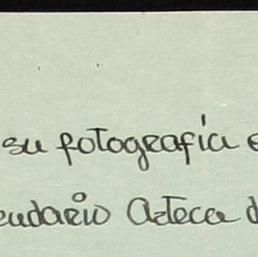 su fotografía e
endario Azteca d